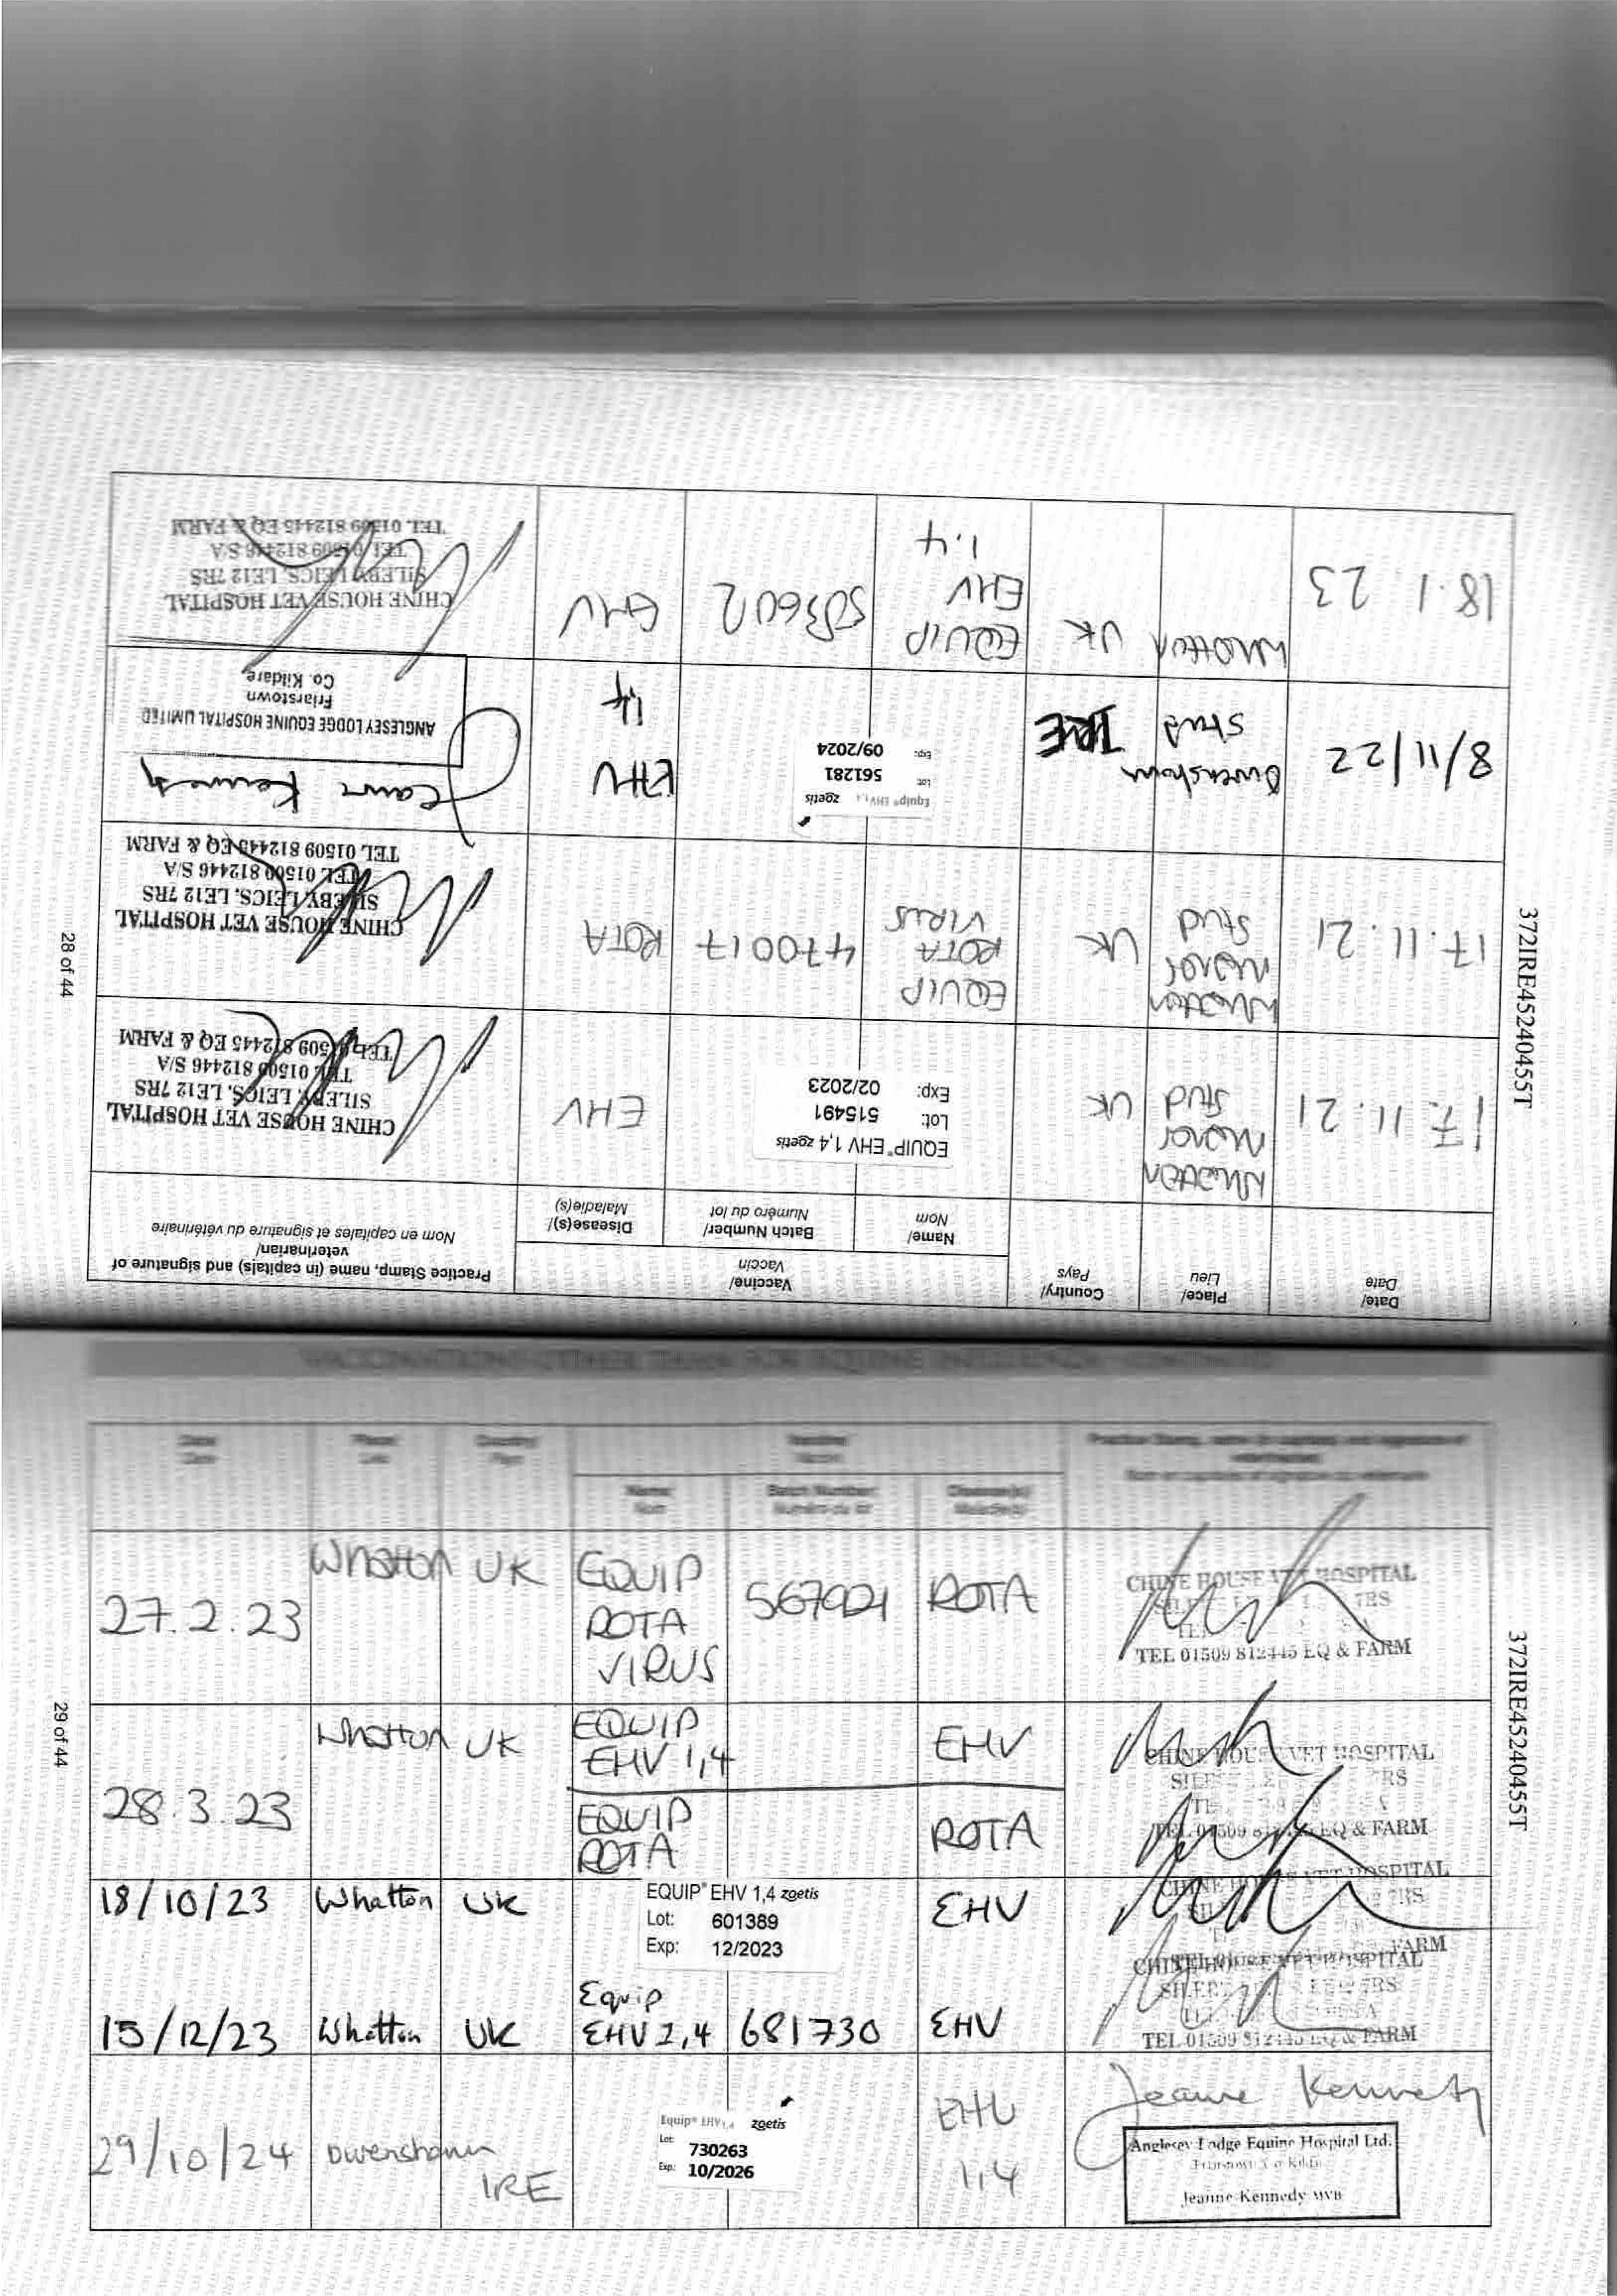 Date/
Date
Place/
Lieu
Country/
Pays
Vaccine/
Vaccin
Name/
Nom
Batch Number/
Numéro du lot
Disease(s)/
Maladie(s)
Practice Stamp, name (in capitals) and signature of
veterinarian/
Nom en capitales et signature du vétérinaire
17.11.21
Whatton
Manor
Stud
UK
EQUIP® EHV 1,4 zoetis
Lot: 515491
Exp: 02/2023
EHV
CHINE HOUSE VET HOSPITAL
SILEBY, LEICS, LE12 7RS
TEL 01509 812446 S/A
TEL 01509 812445 EQ & FARM
17.11.21
Whatton
Manor
Stud
UK
EQUIP
ROTA
VIRUS
470017
ROTA
CHINE HOUSE VET HOSPITAL
SILEBY, LEICS, LE12 7RS
TEL 01509 812446 S/A
TEL 01509 812445 EQ & FARM
8/11/22
Owenstown
Stud
IRE
Equip® EHV 1,4 zoetis
Lot: 561281
Exp: 09/2024
EHV
1,4
Jeanne Kennedy
ANGLESEY LODGE EQUINE HOSPITAL LIMITED
Friarstown
Co. Kildare
18.1.23
Whatton
UK
EQUIP
EHV
1.4
EHV
CHINE HOUSE VET HOSPITAL
SILEBY, LEICS, LE12 7RS
TEL 01509 812446 S/A
TEL 01509 812445 EQ & FARM
28 of 44
372IRE45240455T
VACCINATIONS OTHER THAN FOR EQUINE INFLUENZA
Date/
Date
Place/
Lieu
Country/
Pays
Vaccine/
Vaccin
Name/
Nom
Batch Number/
Numéro du lot
Disease(s)/
Maladie(s)
Practice Stamp, name (in capitals) and signature of
veterinarian/
Nom en capitales et signature du vétérinaire
27.2.23
Whatton
UK
EQUIP
ROTA
VIRUS
567921
ROTA
CHINE HOUSE VET HOSPITAL
TEL 01509 812445 EQ & FARM
28.3.23
Whatton
UK
EQUIP
EHV 1,4
EHV
EQUIP
ROTA
ROTA
CHINE HOUSE VET HOSPITAL
TEL 01509 812445 EQ & FARM
18/10/23
Whatton
UK
EQUIP® EHV 1,4 zoetis
Lot: 601389
Exp: 12/2023
EHV
CHINE HOUSE VET HOSPITAL
FARM
15/12/23
Whatton
UK
Equip
EHV 1,4
681730
EHV
CHINE HOUSE VET HOSPITAL
TEL 01509 812445 EQ & FARM
29/10/24
Owenstown
IRE
Equip® EHV 1,4 zoetis
Lot: 730263
Exp: 10/2026
EHV
1,4
Jeanne Kennedy
Anglesey Lodge Equine Hospital Ltd.
Friarstown Co Kildare
Jeanne Kennedy MVB
29 of 44
372IRE45240455T